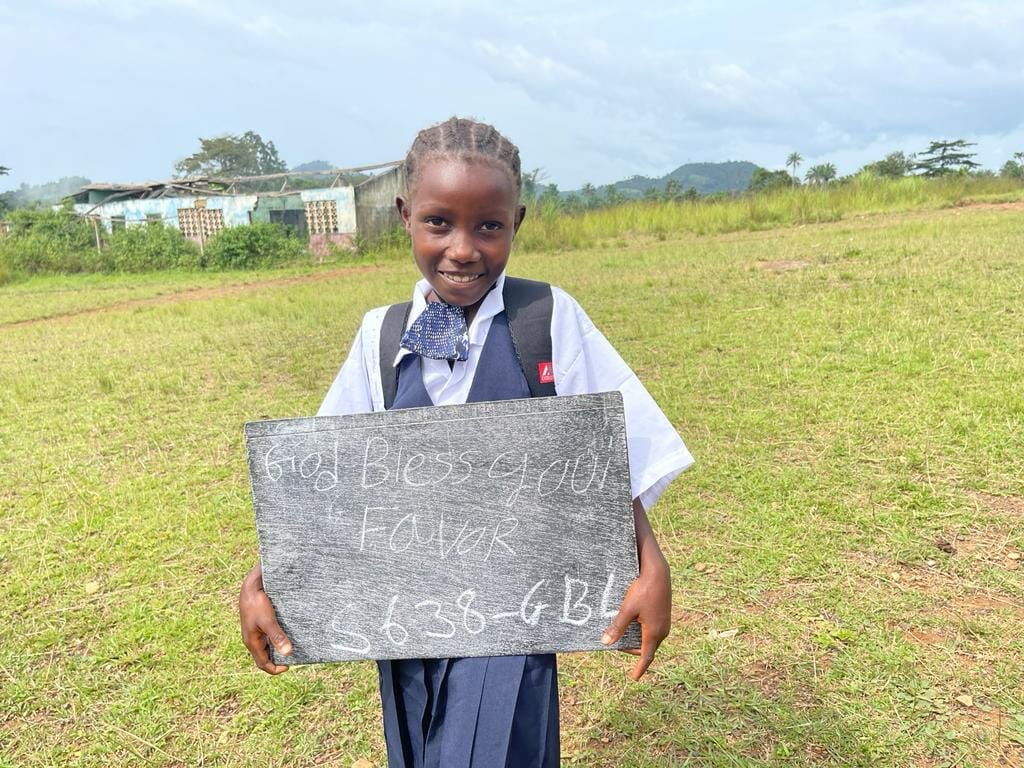 God Bless you!
Favor
S638-GBL